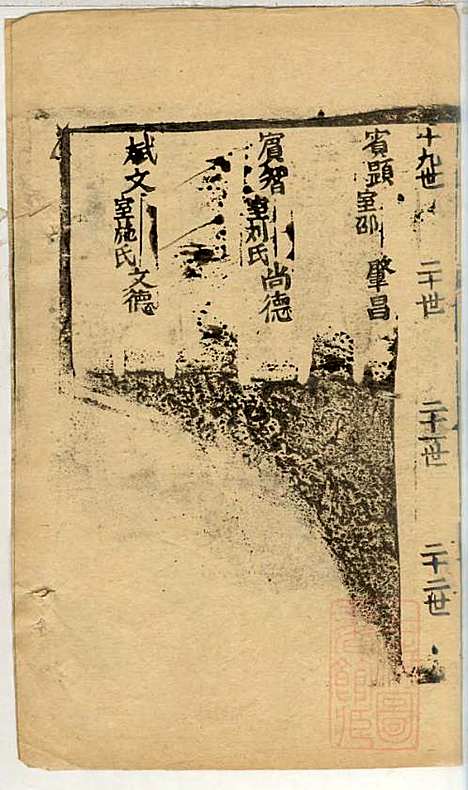 十九世
二十世
二十一世
二十二世
賓顕室邵 肇昌
賓智室刘氏尚德
斌文室施氏文德